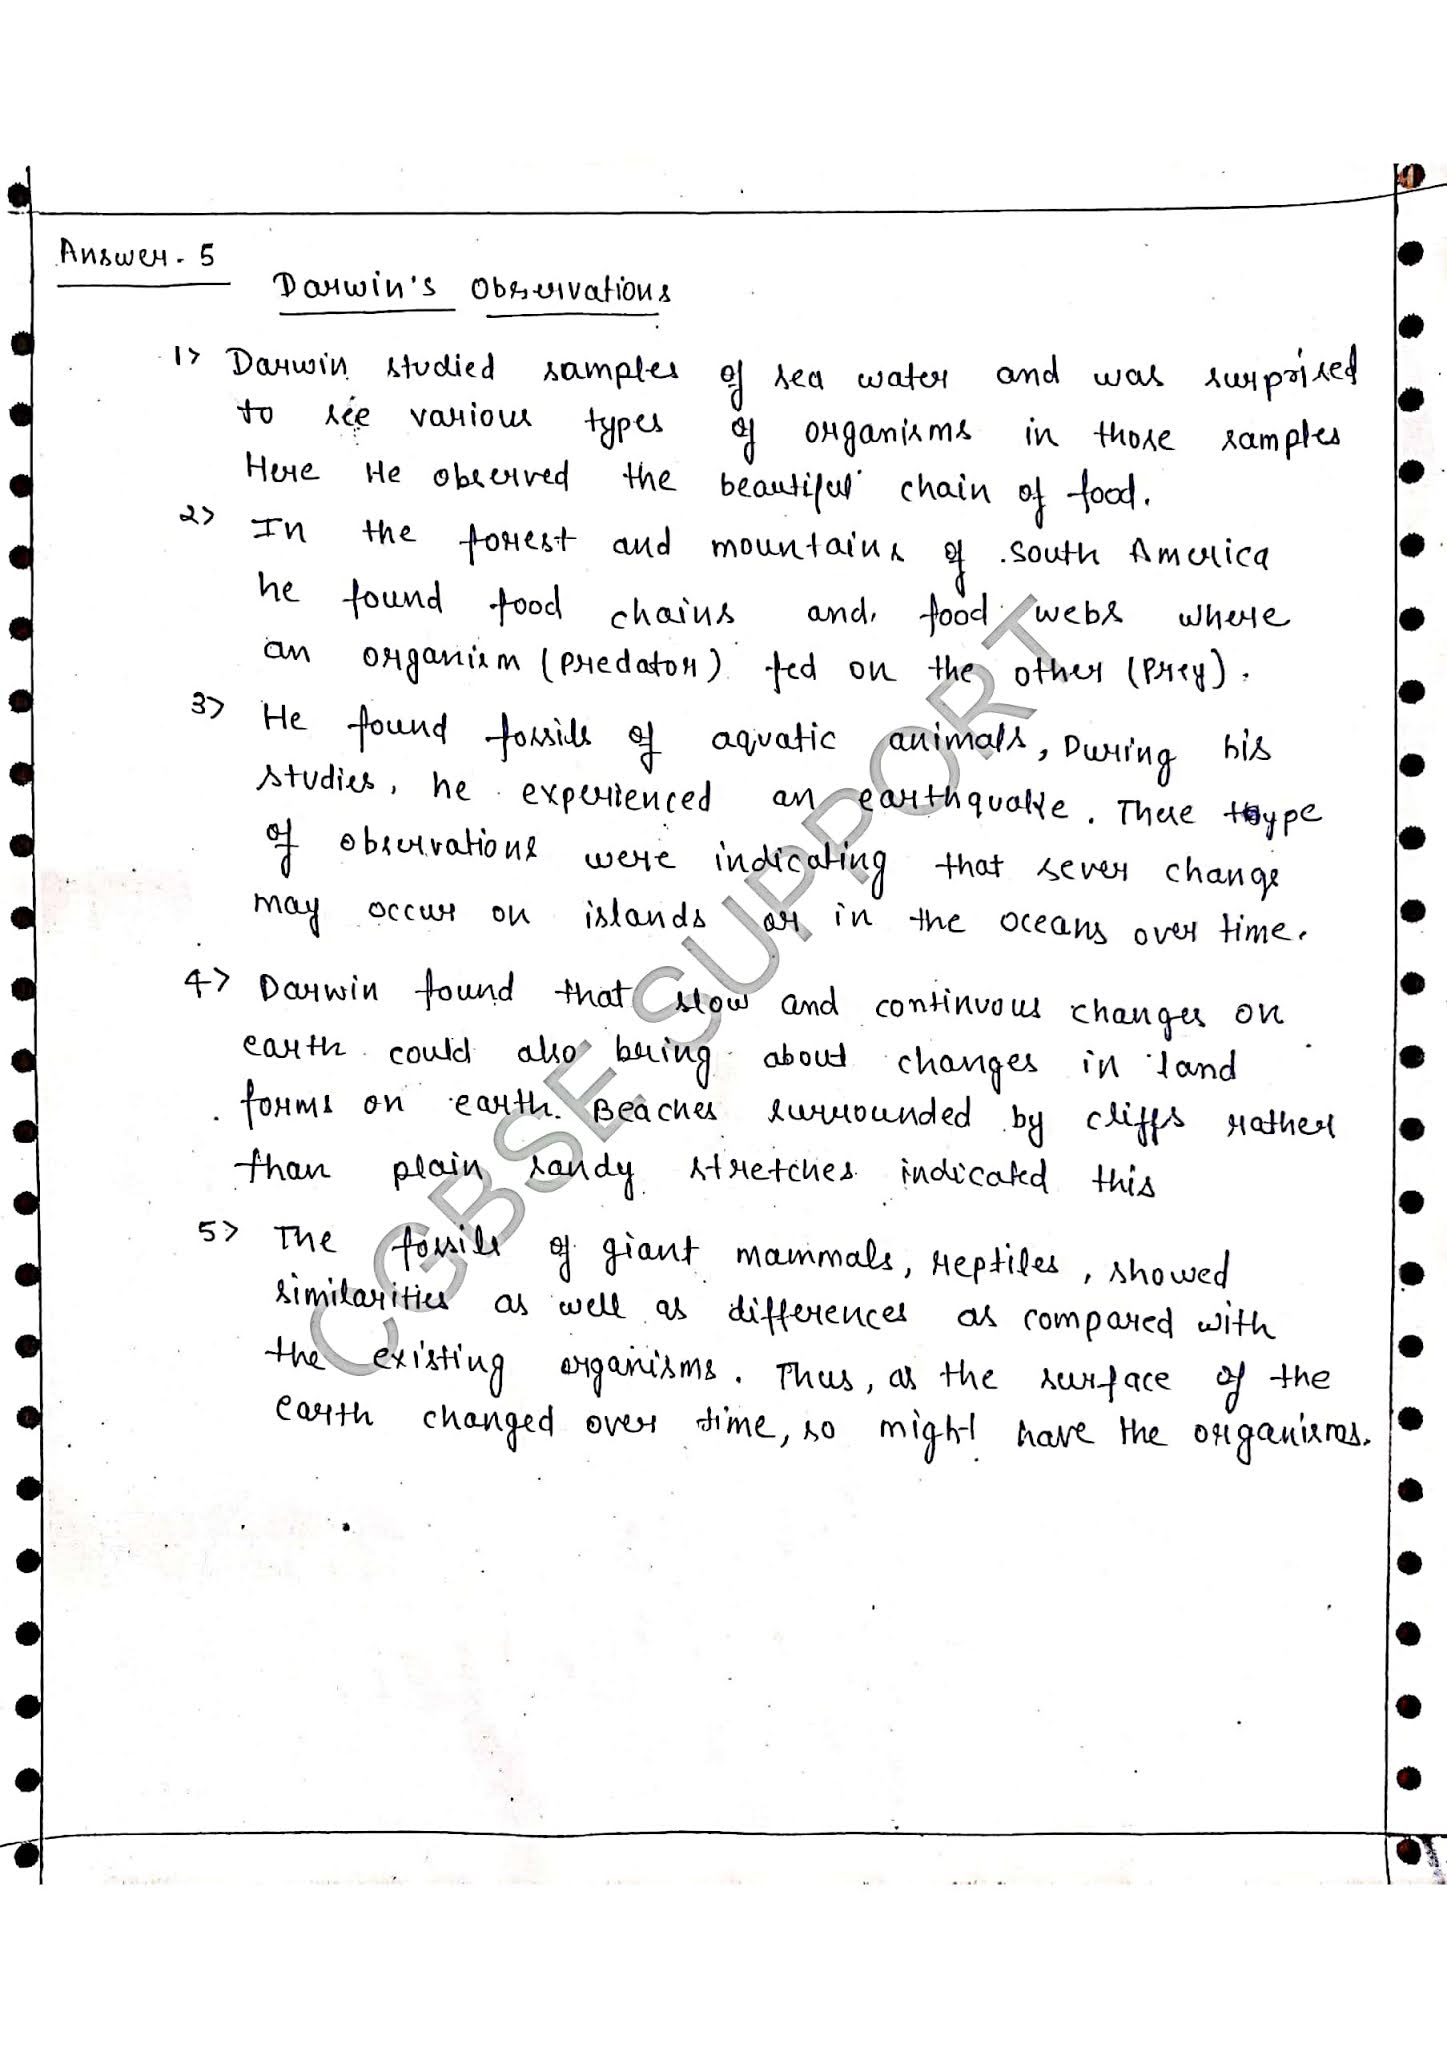 Answer. 5
Darwin's Observations
1> Darwin studied samples of sea water and was surprised
to see various types of organisms in those samples
Here He observed the beautiful chain of food.
2> In the forest and mountains of South America
he found food chains and food webs where
an organism (predator) fed on the other (prey).
3> He found fossils of aquatic animals, During his
studies, he experienced an earthquake. These type
of observations were indicating that sever change
may occur on islands or in the oceans over time.
4> Darwin found that slow and continuous changes on
earth could also bring about changes in land
forms on earth. Beaches surrounded by cliffs rather
than plain sandy stretches indicated this
5> The fossils of giant mammals, reptiles, showed
similarities as well as differences as compared with
the existing organisms. Thus, as the surface of the
earth changed over time, so might have the organisms.
CGBSE SUPPORT